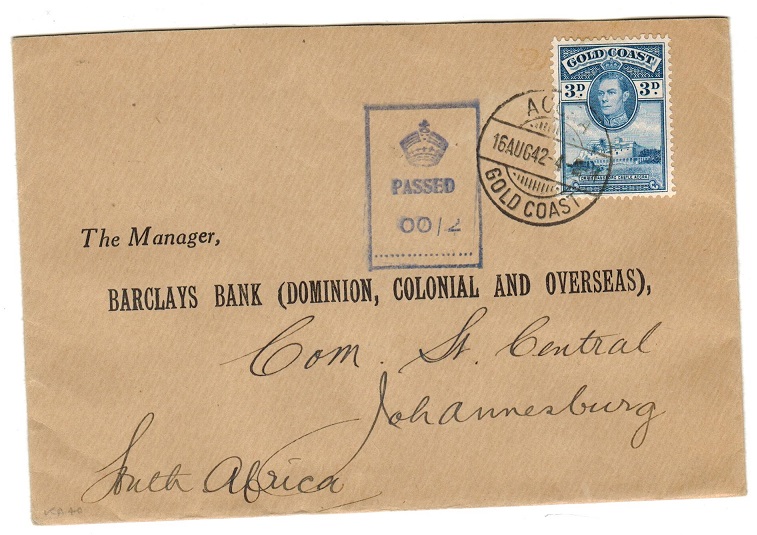 GOLD COAST
3D 3D
CHRISTIANSBORG CASTLE ACCRA
ACCRA
16AUG42-4
GOLD COAST
PASSED
00/2
The Manager,
BARCLAYS BANK (DOMINION, COLONIAL AND OVERSEAS),
Com. St. Central
Johannesburg
South Africa